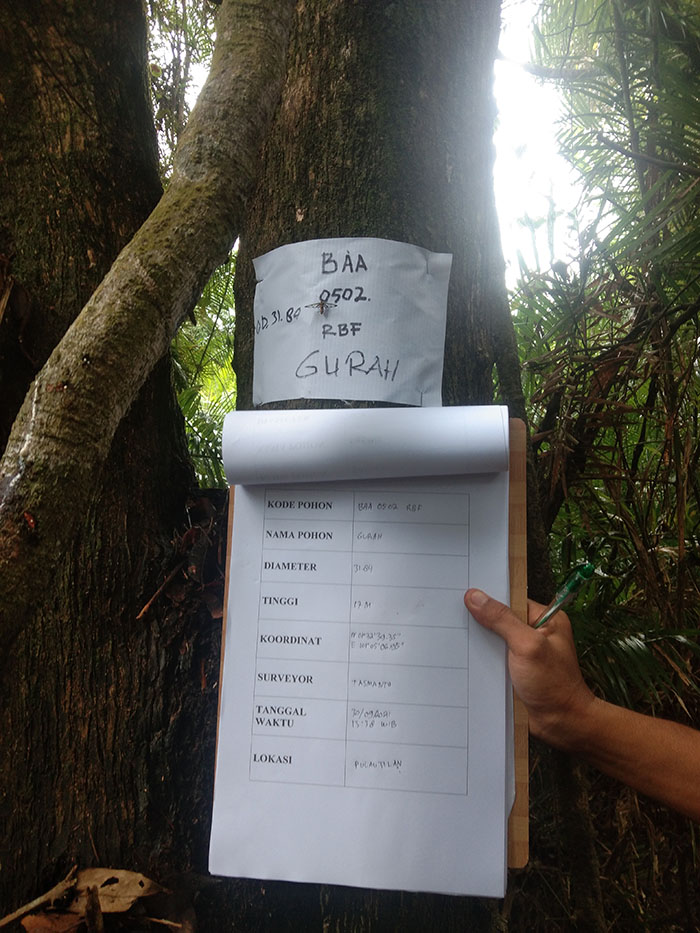 BAA
0502.
RBF
GURAH
KODE POHON BAA 0502 RBF
NAMA POHON GURAH
DIAMETER 31.84
TINGGI 17 M
KOORDINAT
SURVEYOR TASMANTO
TANGGAL
WAKTU
30/09/2021
13:38 WIB
LOKASI